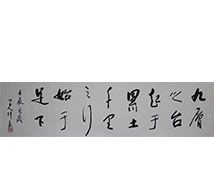 九層
之台
起于
累土
千里
之行
始于
足下